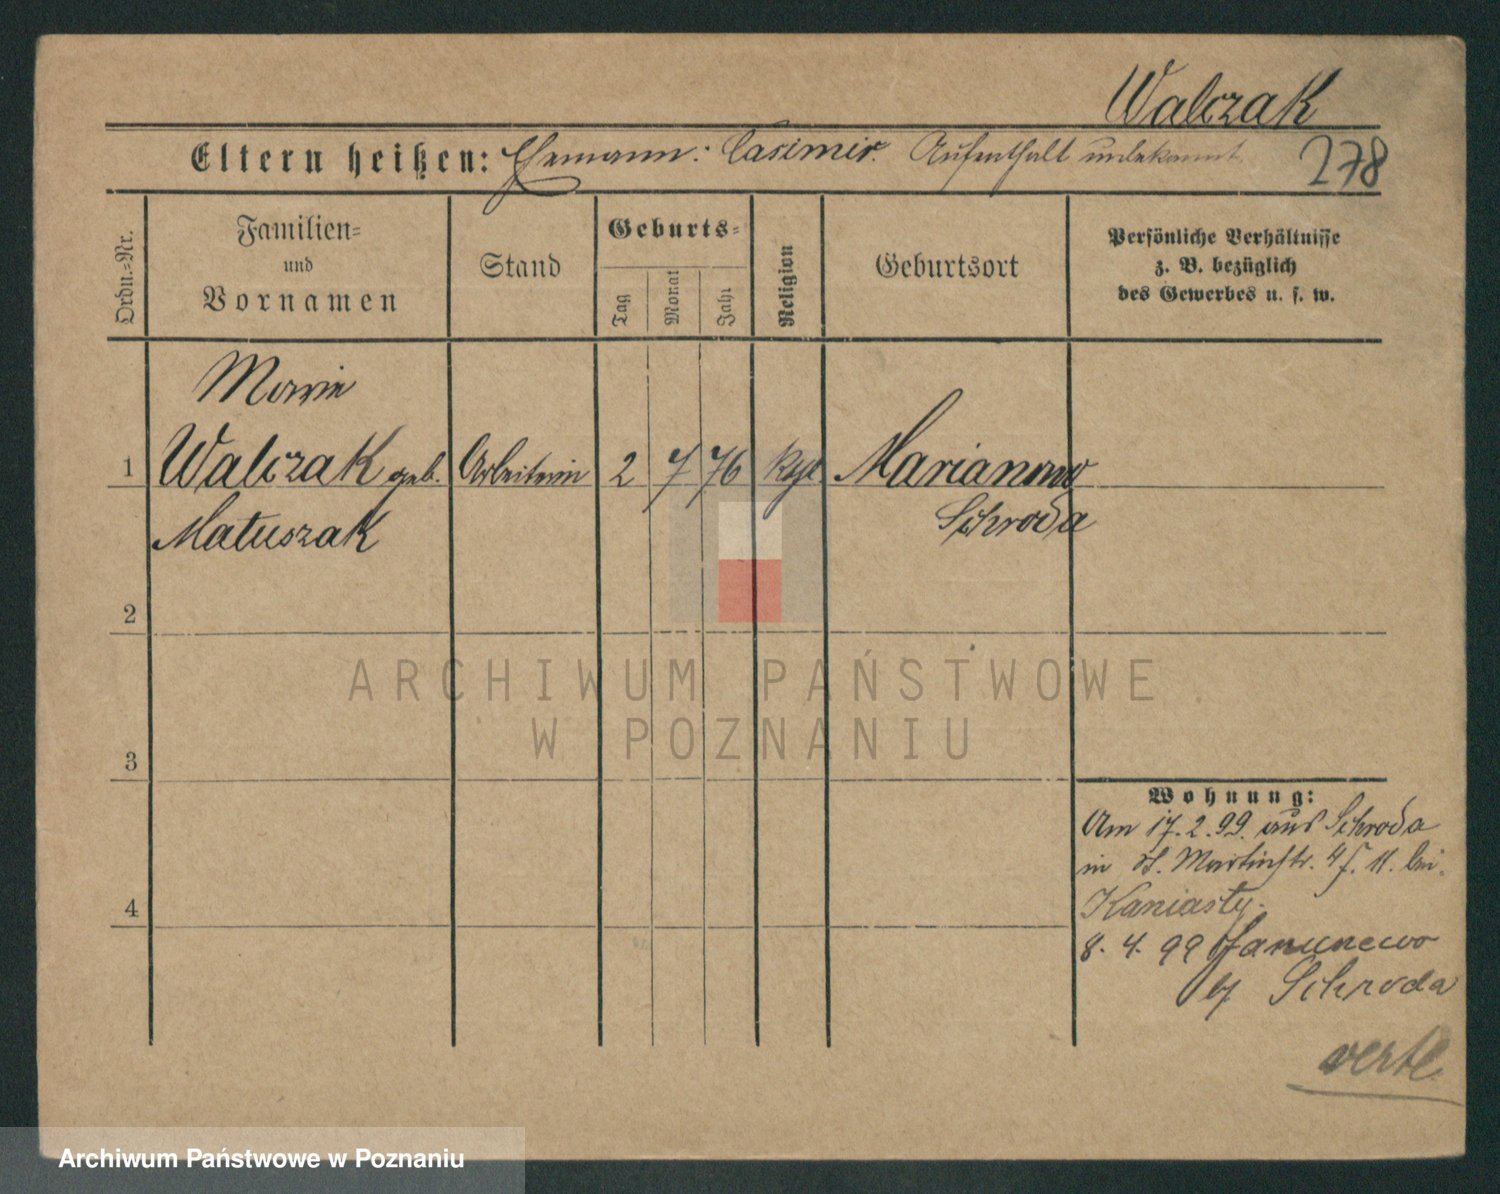 Walczak
Eltern heißen: Ehemann: Casimir. Aufenthalt unbekannt.
278
Ordn.=Nr.
Familien=
und
Vornamen
Stand
Geburts=
Tag
Monat
Jahr
Religion
Geburtsort
Persönliche Verhältnisse
z. B. bezüglich
des Gewerbes u. s. w.
Marie
1 Walczak geb. Arbeiterin 2 7 76 Marianowo
Matuszak Schroda
2
ARCHIWUM PAŃSTWOWE
W POZNANIU
3
Wohnung:
Am 17. 2. 99. aus Schroda
in St. Martinstr. 45. II. bei
4 Kaniasty.
8. 4. 99
Schroda
verte
Archiwum Państwowe w Poznaniu